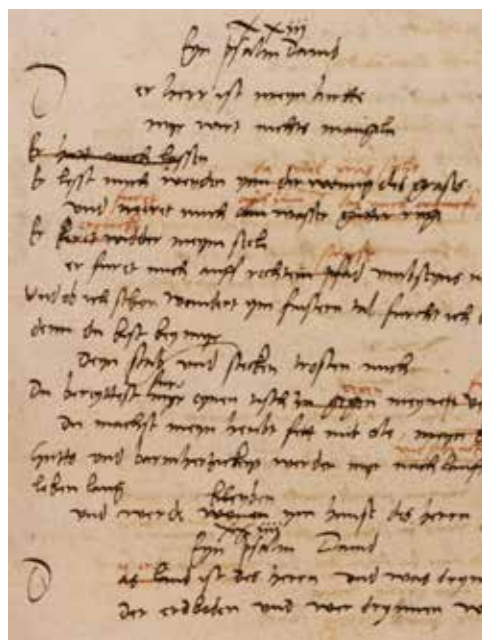 XXiii
Eyn psalm Dauid
Der herr ist meyn hirtte
myr wirt nichts mangeln
Er hatt mich lassen
Er lesst mich weyden ynn der wonung des grases
und neeret mich am wasser gutter ruge
Er keret widder meyn seele
er furet mich auff rechtem pfad umb seyns n
Und ob ich schon wandert ym finstern tal furcht ich
denn du bist bey myr
Deyn stab und stecken trosten mich
Du bereyttest fur myr eynen tisch gegen meyner
Du machst meyn heubt fett mit ole, meyn
Gutts und barmhertzickeyt werden myr nach lauff
leben lang
und werde wonen bleyben ym hauss des herrn
XXiiii
Eyn Psalm Dauid
Das land ist des herrn und was drynn
Der erdboden und wer drynnen w